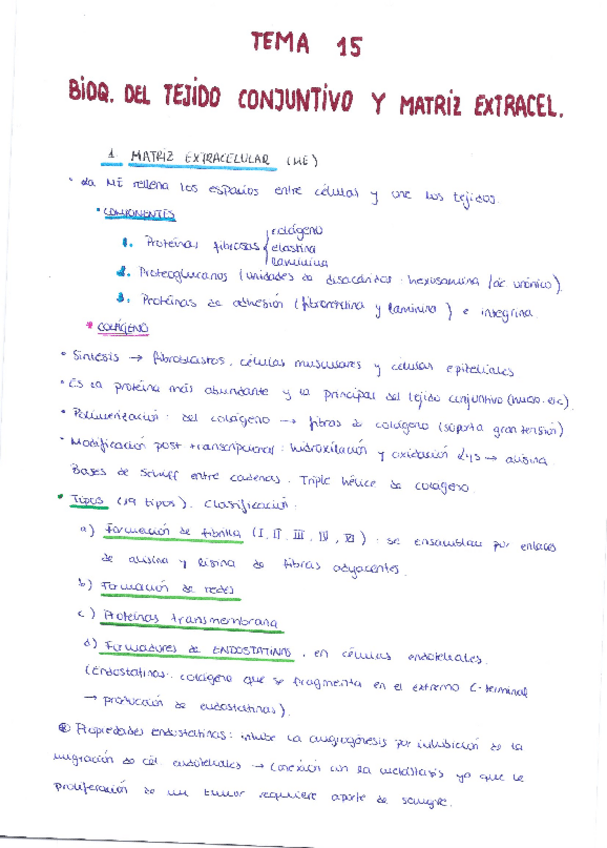 TEMA 15
BIOQ. DEL TEJIDO CONJUNTIVO Y MATRIZ EXTRACEL.
1. MATRIZ EXTRACELULAR (ME)
• La ME rellena los espacios entre células y une los tejidos.
• COMPONENTES
1. Proteínas fibrosas { colágeno
elastina
laminina
2. Proteoglucanos (unidades de disacáridos: hexosamina / ác. urónico).
3. Proteínas de adhesión (fibronectina y laminina) e integrina.
* COLÁGENO
• Síntesis → fibroblastos, células musculares y células epiteliales
• Es la proteína más abundante y la principal del tejido conjuntivo (hueso, etc).
• Polimerización del colágeno → fibras de colágeno (soporta gran tensión)
• Modificación post transcripcional: hidroxilación y oxidación Lys → alisina
Bases de Schiff entre cadenas. Triple hélice de colágeno.
• Tipos (19 tipos). Clasificación.
a) Formación de fibrilla (I, II, III, IV, XI): se ensamblan por enlaces
de alisina y lisina de fibras adyacentes.
b) Formación de redes
c) Proteínas transmembrana
d) Formadores de ENDOSTATINAS, en células endoteliales.
(Endostatinas: colágeno que se fragmenta en el extremo C-terminal
→ producción de endostatinas).
Propiedades endostatinas: inhibe la angiogénesis por inhibición de la
migración de cél. endoteliales → conexión con la metástasis ya que la
proliferación de un tumor requiere aporte de sangre.